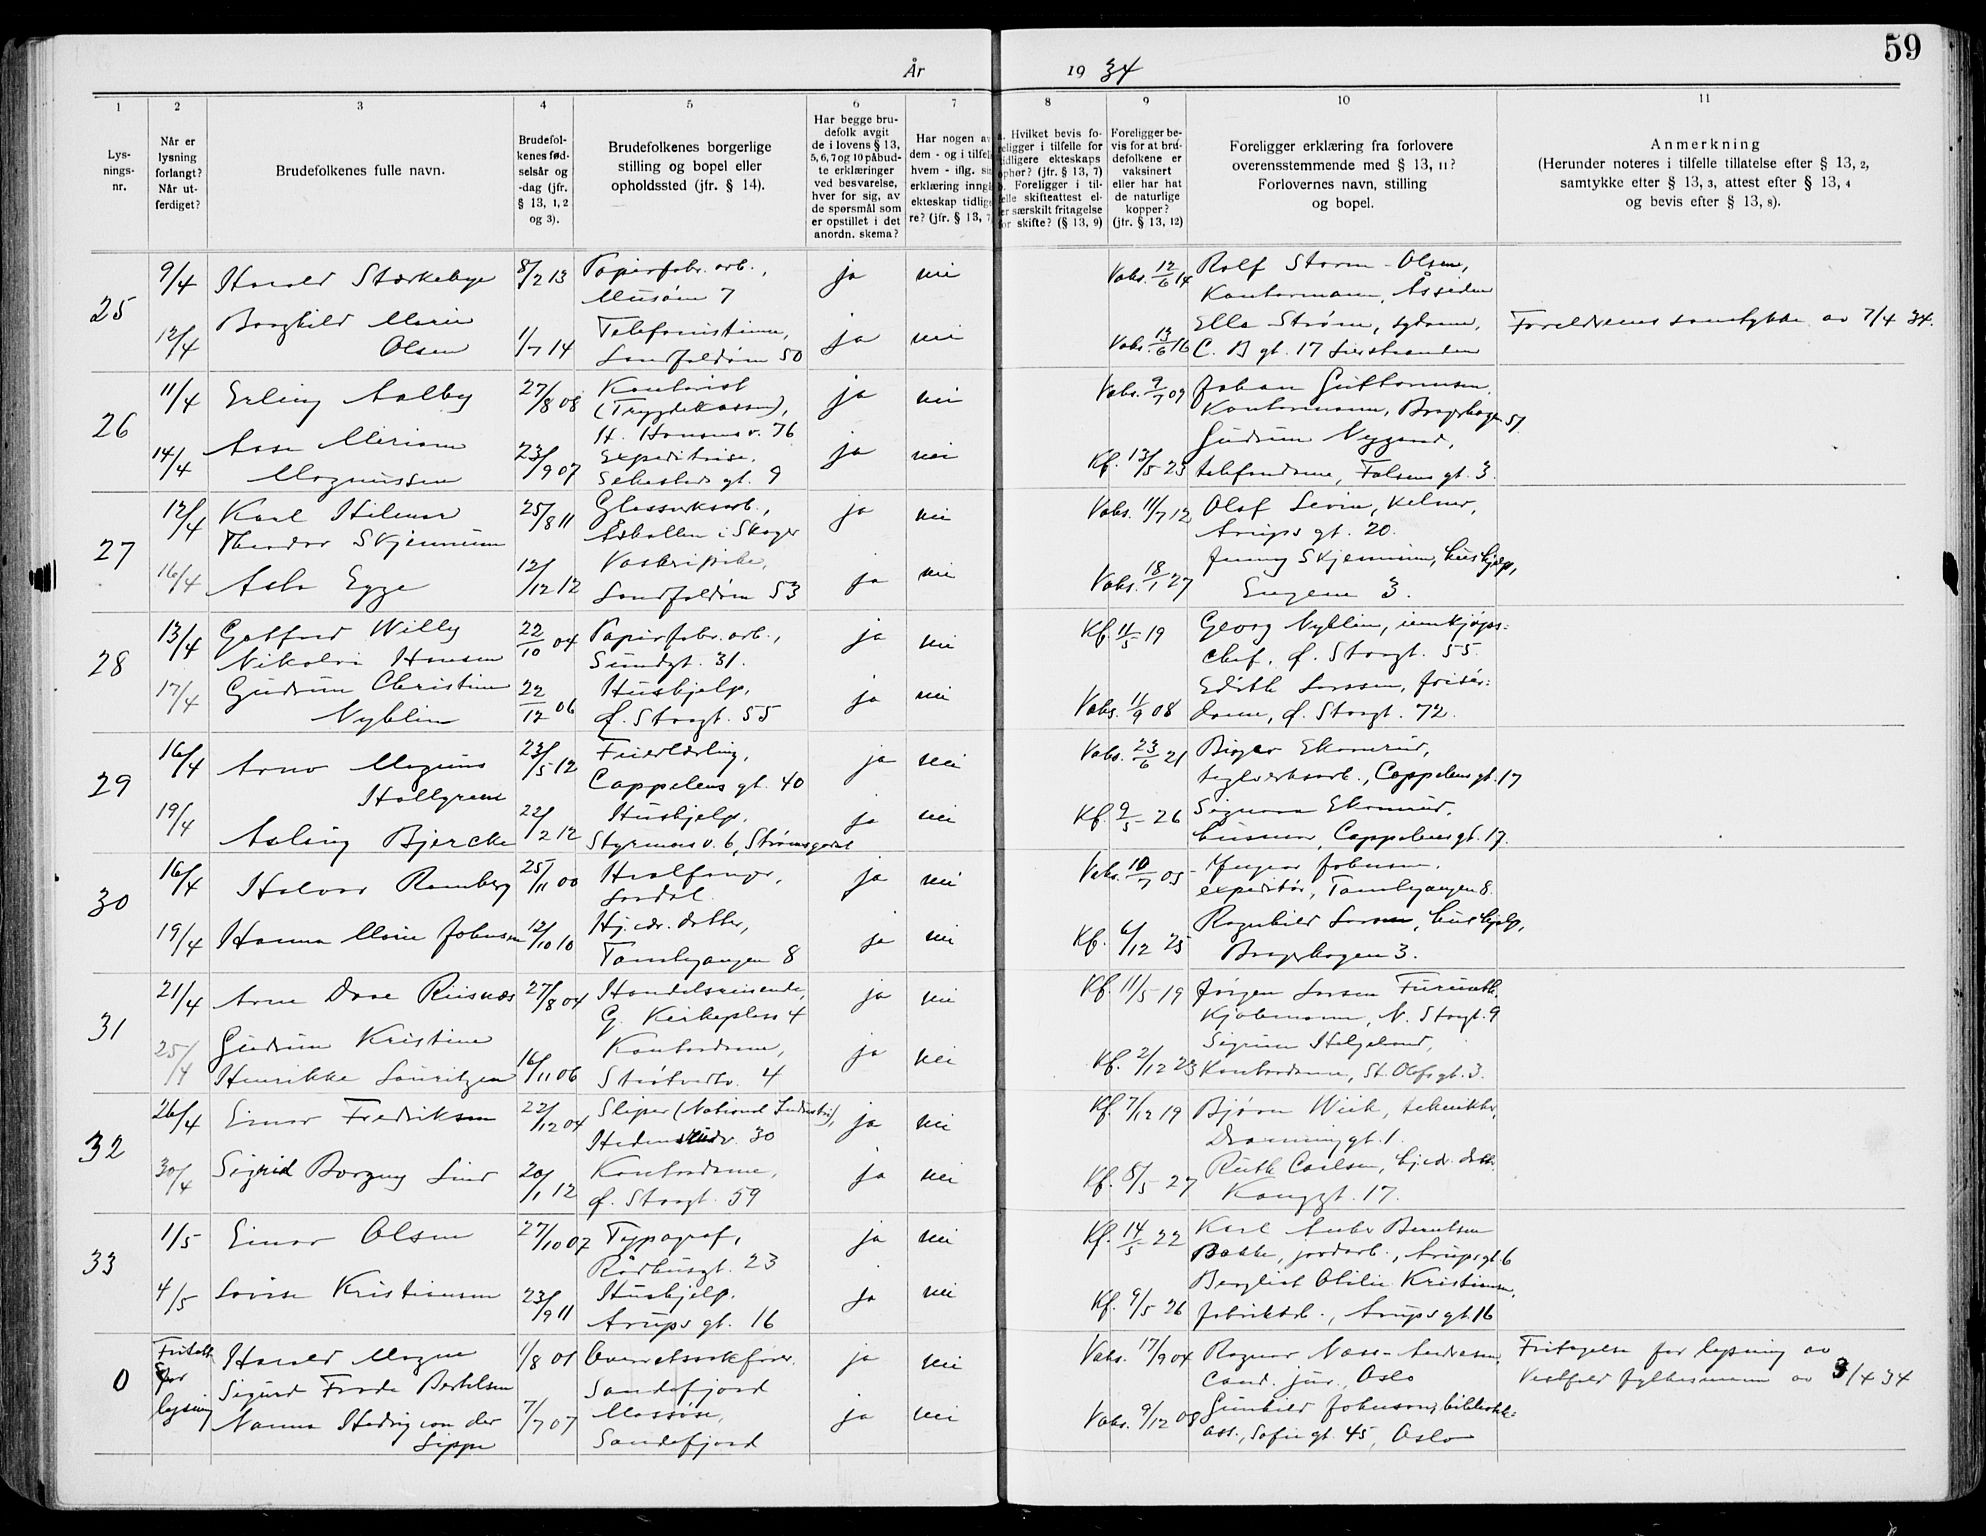 59
År 1934
1 2 3 4 5 6 7 8 9 10 11
Lys-
nings-
nr.
Når er
lysning
forlangt?
Når ut-
ferdiget?
Brudefolkenes fulle navn.
Brudefol-
kenes fød-
selsår og
-dag (jfr.
§ 13, 1, 2
og 3).
Brudefolkenes borgerlige
stilling og bopel eller
opholdssted (jfr. § 14).
Har begge bru-
defolk avgit
de i lovens § 13,
5, 6, 7 og 10 påbud-
te erklæringer
ved besvarelse,
hver for sig, av
de spørsmål som
er opstillet i det
anordn. skema?
Har nogen av
dem - og i tilfelle
hvem - iflg. sin
erklæring inngått
ekteskap tidlige-
re? (jfr. § 13, 7
a. Hvilket bevis fo-
religger i tilfelle for
tidligere ekteskaps
ophør? (jfr. § 13, 7)
b. Foreligger i til-
felle skifteattest el-
ler særskilt fritagelse
for skifte? (§ 13, 9)
Foreligger be-
vis for at bru-
defolkene er
vaksinert
eller har hat
de naturlige
kopper?
(jfr. § 13, 12)
Foreligger erklæring fra forlovere
overensstemmende med § 13, 11?
Forlovernes navn, stilling
og bopel.
Anmerkning
(Herunder noteres i tilfelle tillatelse efter § 13, 2,
samtykke efter § 13, 3, attest efter § 13, 4
og bevis efter § 13, 8).
25 9/4 Harald Størkebye 8/2 13 Papirfabr. arb., ja nei Vaks. 12/6 14 Rolf Storm-Olsen,
Musøen 7 Kontormann, Åssiden
12/4 Borghild Marie Olsen 1/7 14 Telefonistinne, ja nei Vaks. 13/6 16 Ella Strøm, sydame, Foreldrenes samtykke av 7/4 34.
50 C. B gt. 17 Lierstranden
26 11/4 Erling Aalby 27/8 08 Kontorist ja nei Vaks. 9/7 09 Johan Guttormsen,
(Trygdekassen), Kontormann, Bragerhagen 51
H. Hansens v. 76
14/4 Aase Miriam 23/9 07 Expeditrise, ja nei Kf. 13/5 23 Gudrun Nygaard,
Magnussen gt. 9 telefondame, Falsens gt. 3.
27 12/4 Karl Hilmar 25/8 11 Glassverksarb., ja nei Vaks. 11/7 12 Olaf Levin, kelner,
Theodor Skjennum Åskollen i Skoger Arups gt. 20.
16/4 Asta Egge 12/12 12 Vaskeripike, ja nei Vaks. 18/1 27 Jenny Skjennum, hushjelp,
53 Eugene 3.
28 13/4 Gotfred Willy 22/10 04 Papirfabr. arb., ja nei Kf. 11/5 19 Georg Nyblin, innkjøps-
Nikolai Hansen Sundgt. 31. chef, Ø. Storgt. 55.
17/4 Gudrun Christine 22/12 06 Hushjelp, ja nei Vaks. 11/9 08 Edith Larssen, frisør-
Nyblin Ø. Storgt. 55 dame, Ø. Storgt. 72.
29 16/4 Arno Magnus 23/5 12 Feierlærling, ja nei Vaks. 23/6 21 Birger Ekornrud,
Hallgren Cappelens gt. 40 teglverksarb., Cappelens gt. 17
19/4 Aslaug Bjercke 22/2 12 Hushjelp, ja nei Kf. 9/5 26 Signora Ekornrud,
Styrmoes v. 6, Strømsgodset husmor, Cappelens gt. 17.
30 16/4 Halvor Ramberg 25/11 00 Hvalfanger, ja nei Vaks. 10/7 05 Yngvar Johnsen,
Lardal. expeditør, Tamburgangen 8.
19/4 Hanna Marie Johnsen 12/10 10 Hj.vær. datter, ja nei Kf. 6/12 25 Ragnhild Larsen, hushjelp,
Tamburgangen 8 Bragerhagen 3.
31 21/4 Arne Dave Riisnæs 27/8 04 Handelsreisende, ja nei Kf. 11/5 19 Jørgen Larsen Furuseth,
G. Kirkeplass 4 Kjøbmann, N. Storgt. 9
25/4 Gudrun Kristine 16/11 06 Kontordame, ja nei Kf. 2/12 23 Sigrun Helgeland,
Henrikke Lauritzen Strøtvedtv. 4 Kontordame, St. Olafs gt. 3.
32 26/4 Einar Fredriksen 22/12 04 Sliper (National Industri), ja nei Kf. 7/12 19 Bjørn Wiik, tekniker,
30 Dronninggt. 1.
30/4 Sigrid Borgny Lind 20/1 12 Kontordame, ja nei Kf. 8/5 27 Ruth Carlsen, hj.vær. datt.
Ø. Storgt. 59 Konggt. 17.
33 1/5 Einar Olsen 27/10 07 Typograf, ja nei Kf. 14/5 22 Karl Anton Berntsen
Rådhusgt. 23 Bakke, jordarb., Arups gt. 6
4/5 Lovise Kristiansen 23/9 11 Hushjelp, ja nei Kf. 9/5 26 Bergliot Otilie Kristiansen,
Arups gt. 16 fabrikkarb., Arups gt. 16
0 Fritatt Harald Magne 1/8 01 Overretssakfører, ja nei Vaks. 17/9 04 Ragnar Næss-Andresen, Fritagelse for lysning av
for Sigurd Frode Bertelsen Sandefjord cand. jur., Oslo Vestfold fylkesmann av 3/4 34
lysning Nanna Hedvig von der 7/7 07 Massøse, ja nei Vaks. 9/12 08 Gunhild Johnson, bibliotek-
Lippe Sandefjord ass., Sofie gt. 45, Oslo